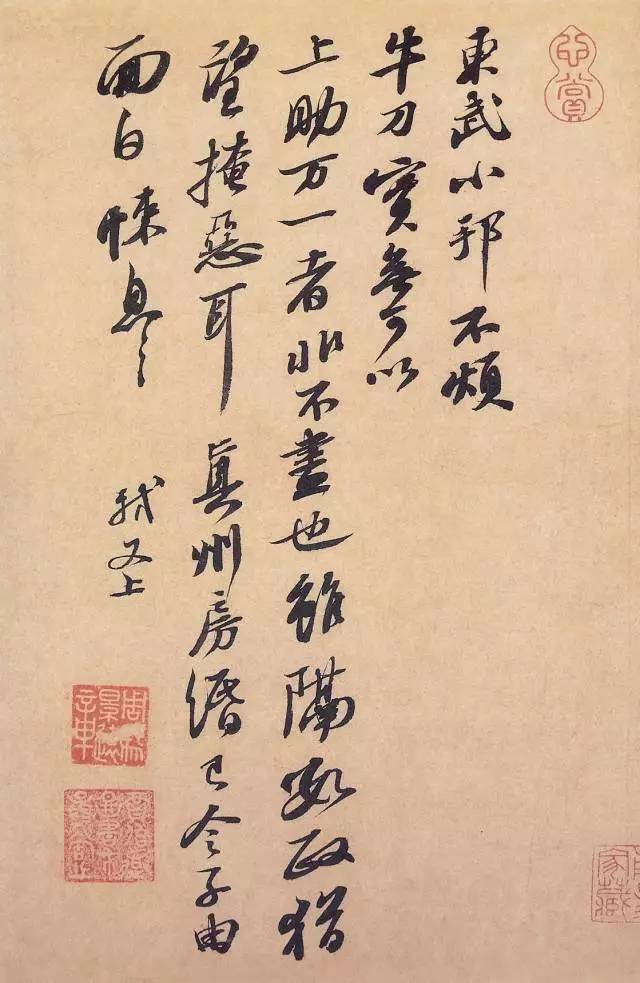 東武小邦不煩
牛刀實無可以
上助万一者非不盡也雖隔數政猶
望掩惡耳真州房緡已令子由
面白悚息悚息
軾又上